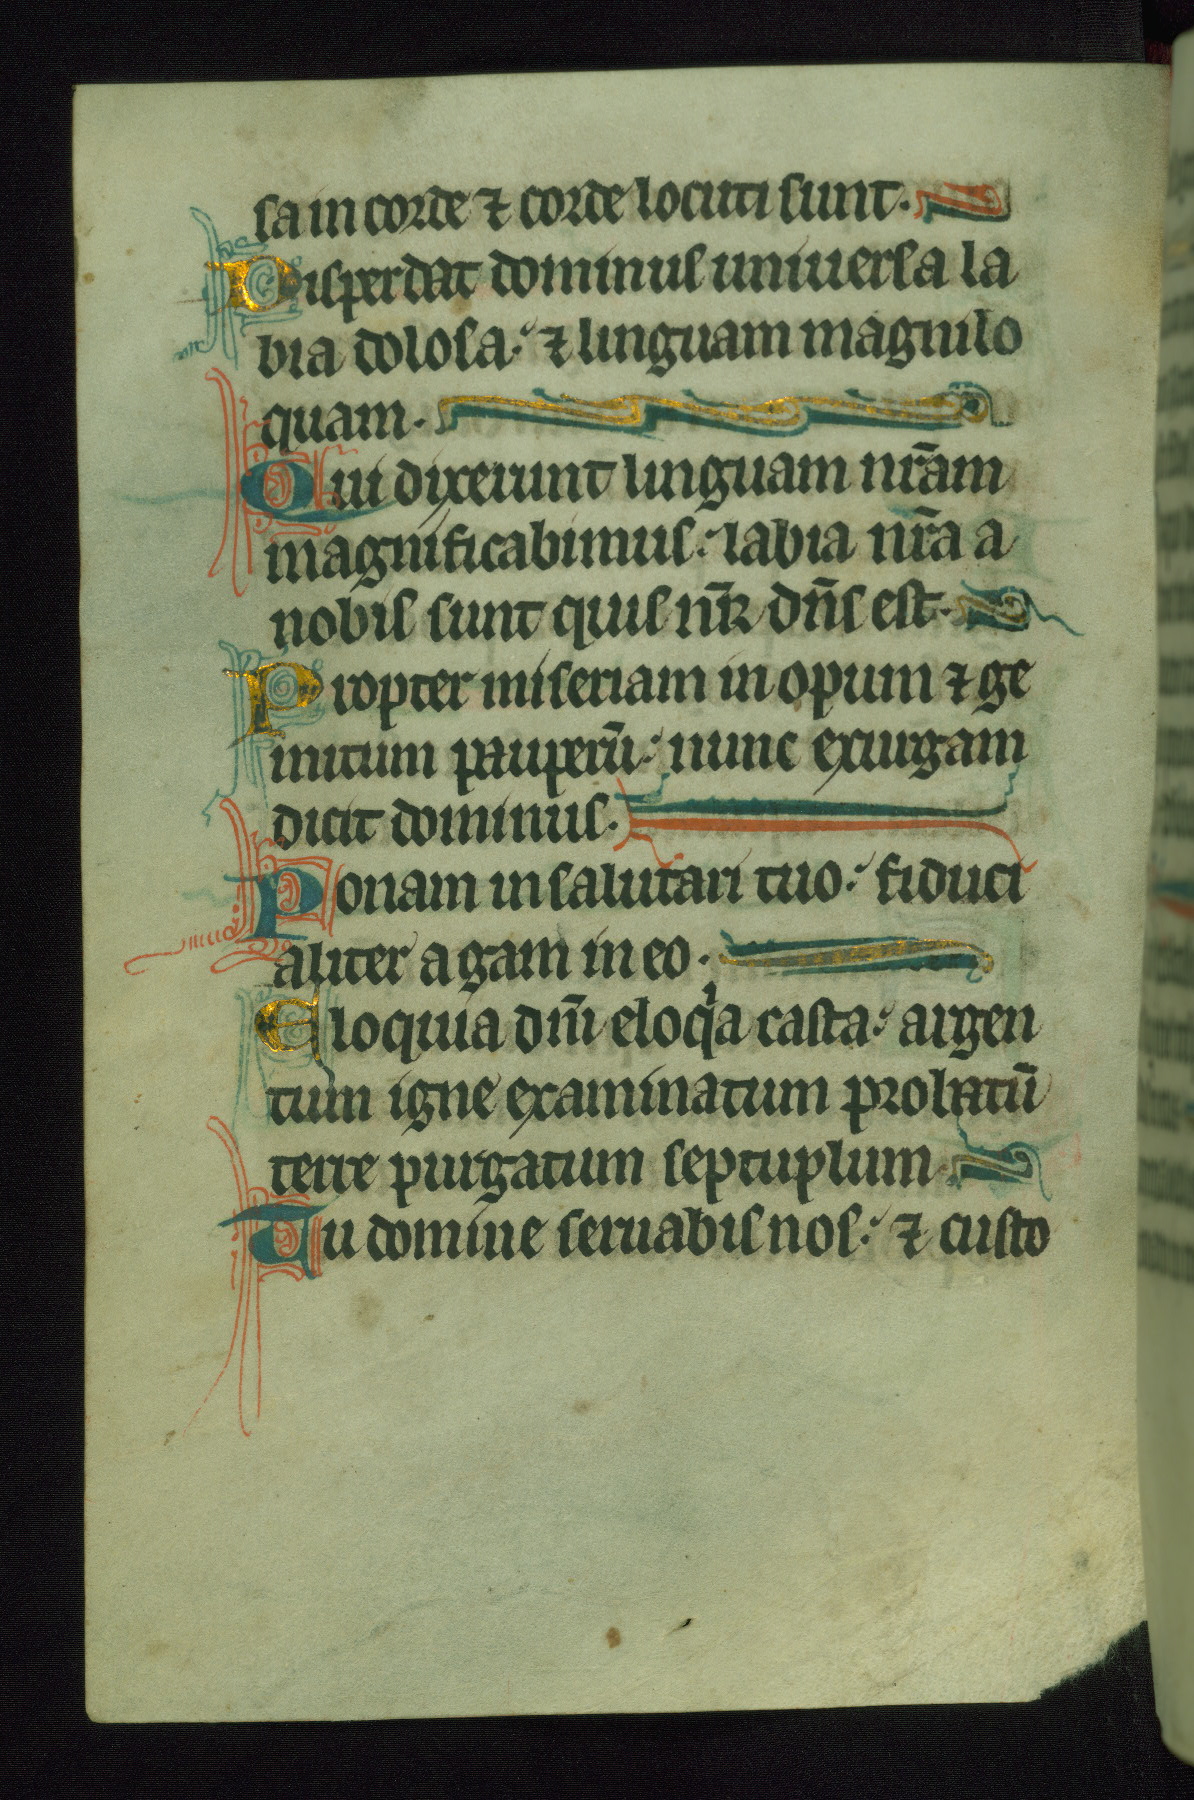 sa in corde ⁊ corde locuti sunt.
Disperdat dominus uniuersa la
bia dolosa: ⁊ linguam magnilo
quam.
Qui dixerunt linguam nr̄am
magnificabimus: labia nr̄a a
nobis sunt quis nr̄ dn̄s est.
Propter miseriam inopum ⁊ ge
mitum pauperū: nunc exurgam
dicit dominus.
Ponam in salutari tuo: fiduci
aliter agam in eo.
Eloquia dn̄i eloq̇a casta: argen
tum igne examinatum probatū
terre purgatum septuplum.
Tu domine seruabis nos: ⁊ custo